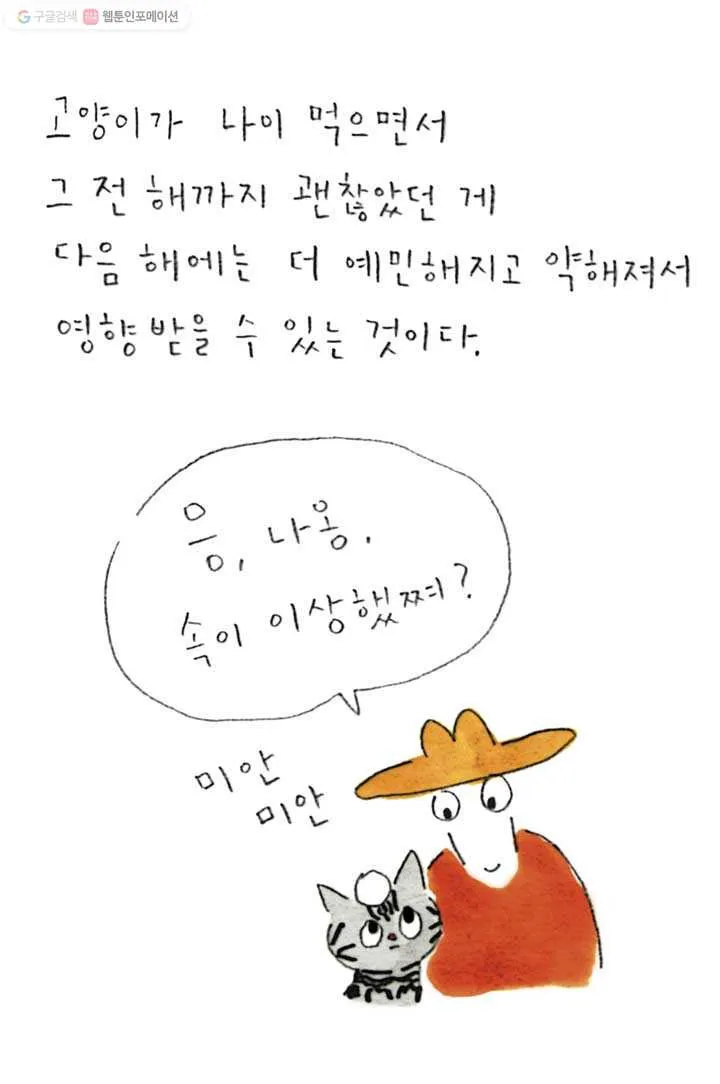 구글검색 웹툰인포메이션
고양이가 나이 먹으면서
그 전 해까지 괜찮았던 게
다음 해에는 더 예민해지고 약해져서
영향받을 수 있는 것이다.
응, 나옹.
속이 이상했쪄?
미안
미안